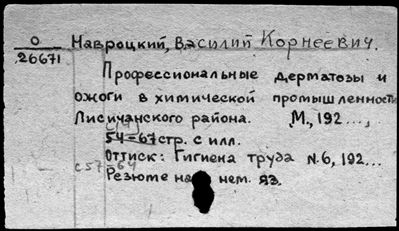 О
26671
Навроцкий, Василий Корнеевич.
Профессиональные дерматозы и
ожоги в химической промышленности
Лисичанского района. М., 192...,
54-67 стр. с илл.
Оттиск: Гигиена труда N.6, 192...
с 57-64
Резюме на нем. яз.